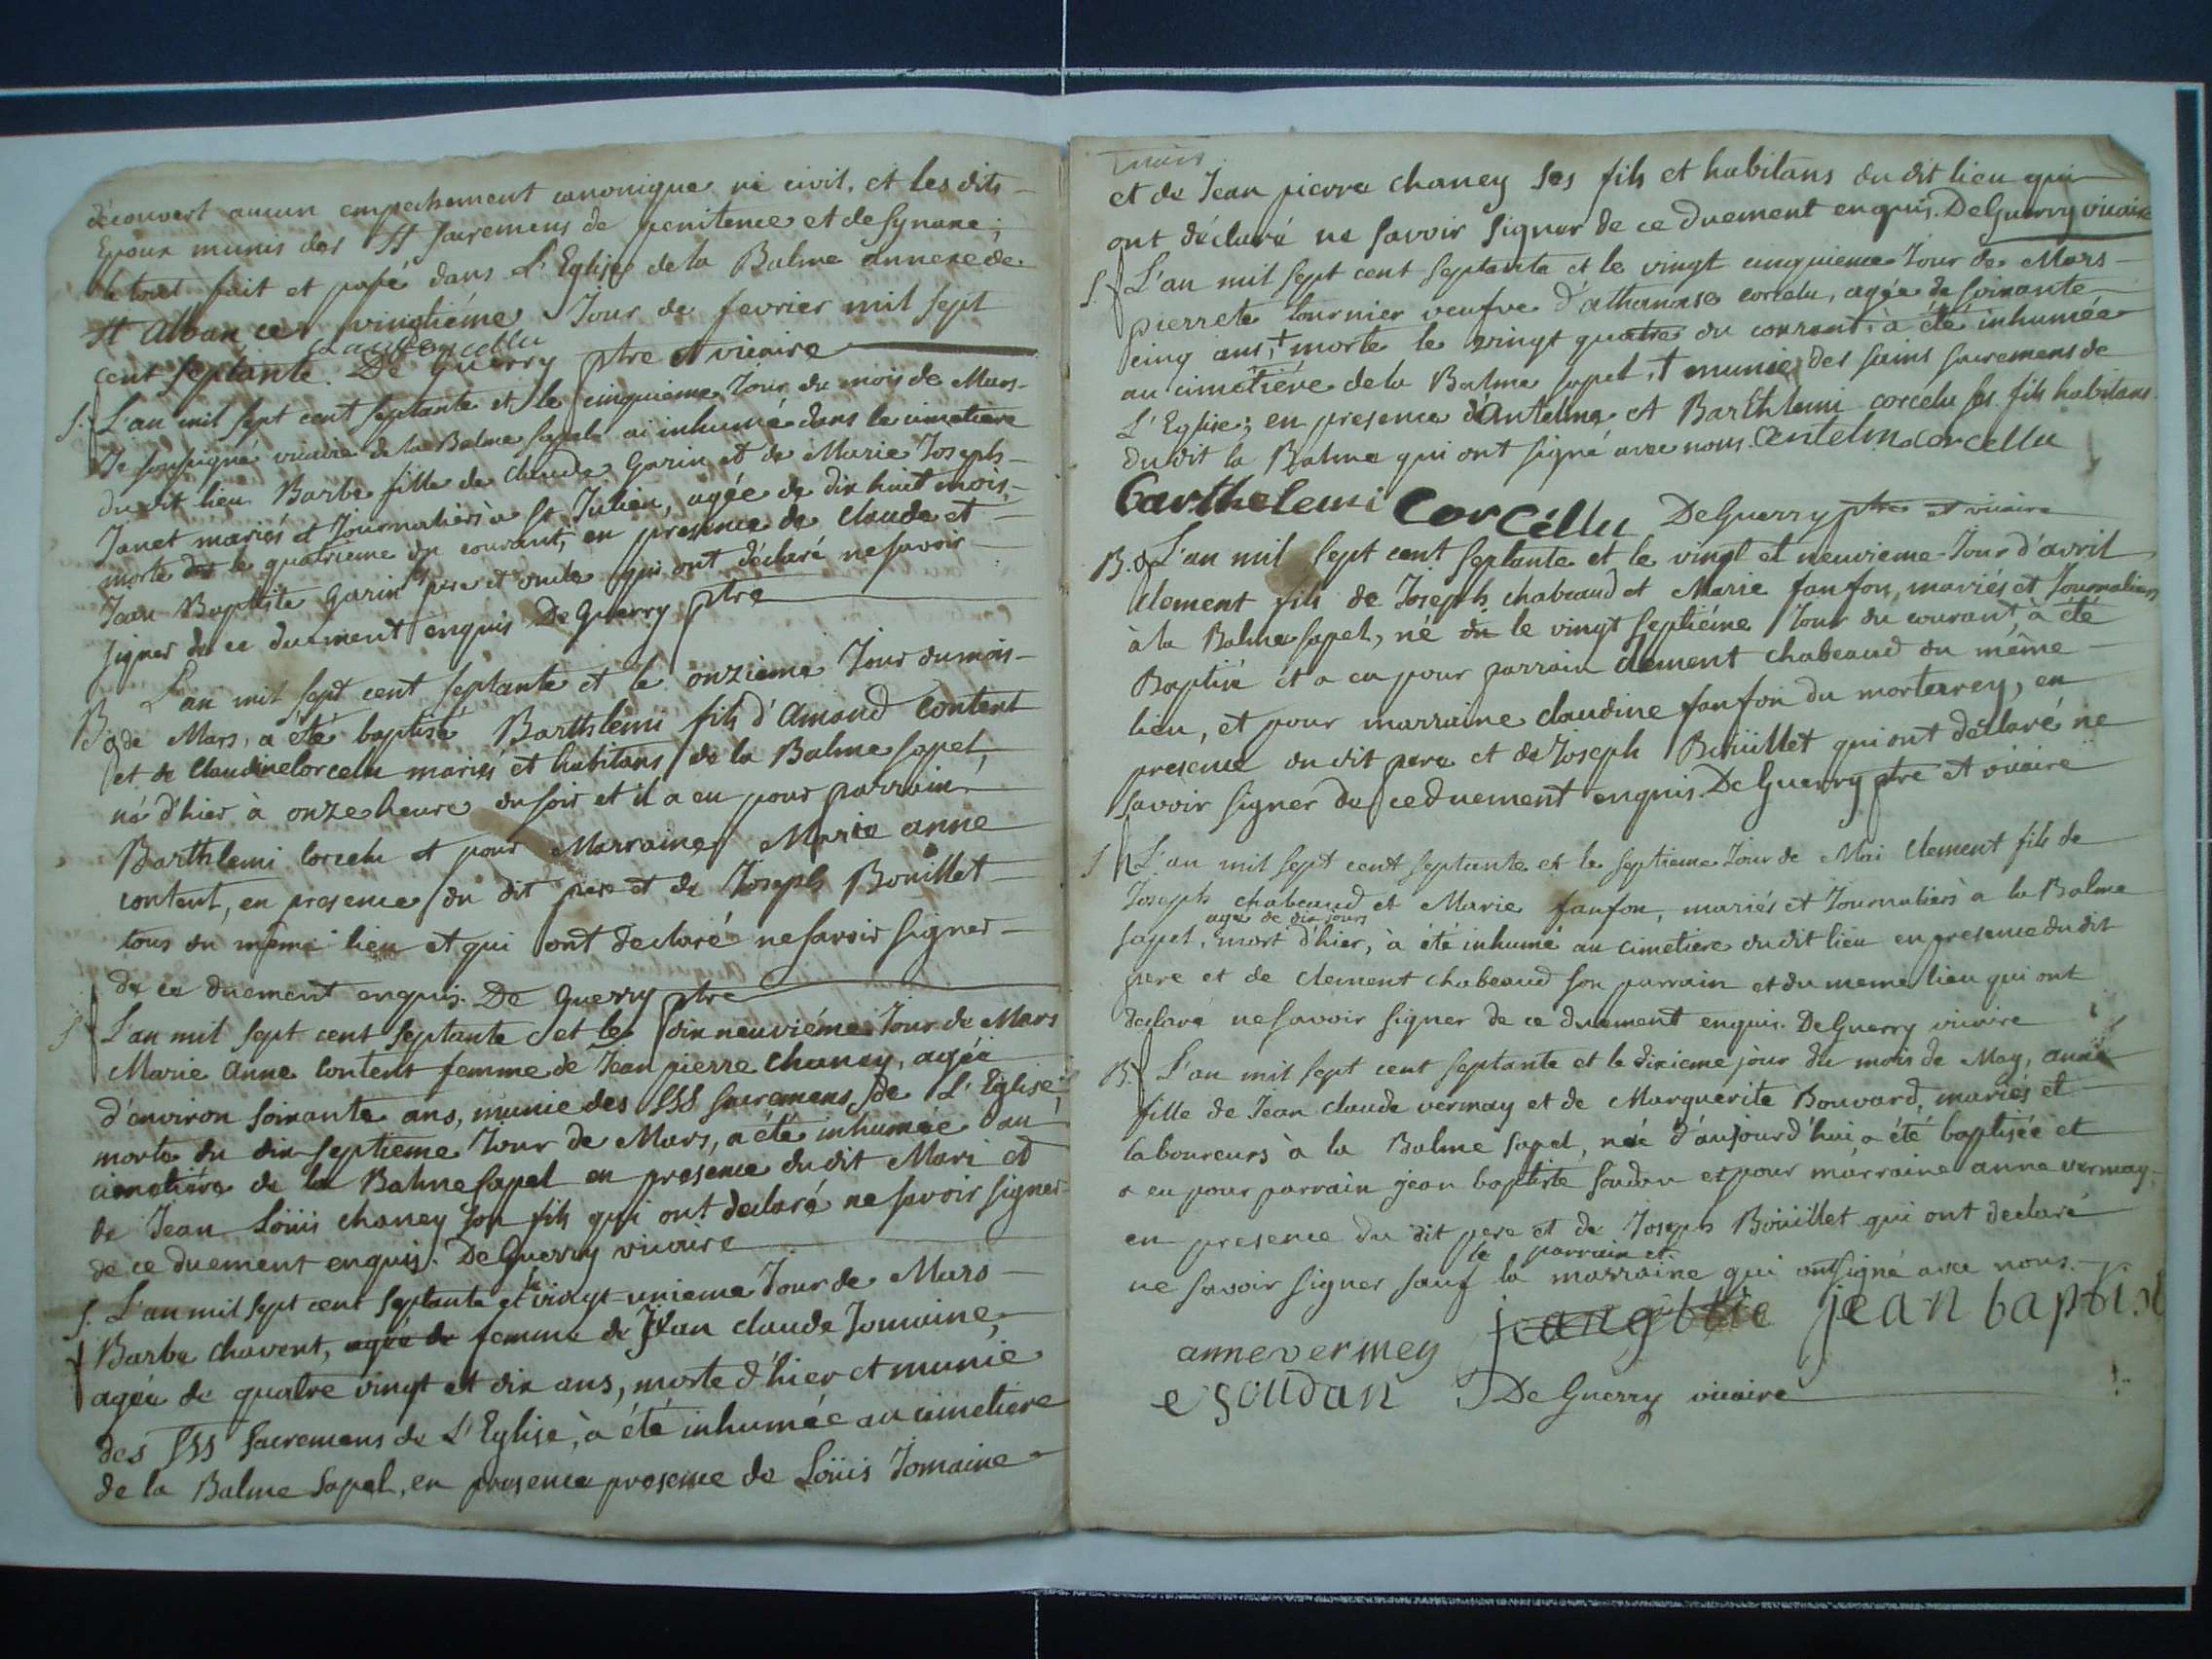 découvert aucun empechement canonique ni civil, et les dits
Epoux munis des SS sacremens de penitence et de synaxe;
le tout fait et passé dans L'Eglise de la Balme annexe de
St Alban ce vingtiéme Jour de fevrier mil sept
cent septante. De Guerry ptre et vicaire
S. L'an mil sept cent septante et le cinquieme Jour du mois de Mars
Je soussigné vicaire de la Balme sapel ai inhumé dans le cimetiere
du dit lieu Barbe fille de claude Garin et de Marie Joseph
Janet mariés et Journaliers à St Julien, agée de dix huit mois,
morte le quatrieme du courant, en presence de claude et
Jean Baptiste Garin pere et oncle qui ont déclaré ne savoir
signer de ce duement enquis De Guerry ptre
B L'an mil sept cent septante et le onzieme Jour du mois
de Mars, a été baptisé Barthlemi fils d'Amand Content
et de Claudine Corcelu mariés et habitans de la Balme sapel,
né d'hier à onze heure du soir et il a eu pour parrain
Barthlemi Corcelu et pour Marraine Marie anne
content, en presence du dit pere et de Joseph Bouillet
tous du même lieu et qui ont declaré ne savoir signer
de ce duement enquis. De Guerry ptre
S L'an mil sept cent septante et le dix neuviéme Jour de Mars
Marie Anne Content femme de Jean pierre chaney, agée
d'environ soixante ans, munie des SSS sacremens de L'Eglise,
morte du dix septieme Jour de Mars, a été inhumée au
cimetiére de la Balme sapel en presence du dit Mari et
de Jean Loüis chaney son fils qui ont declaré ne savoir signer
de ce duement enquis. De Guerry vicaire
S. L'an mil sept cent septante et le vingt-unieme Jour de Mars
Barbe chavent, agée de femme de Jean claude Jomaine,
agée de quatre vingt et dix ans, morte d'hier et munie
des SSS sacremens de L'Eglise, à été inhumée au cimetiere
de la Balme Sapel, en presence presence de Loüis Jomaine
et de Jean pierre chaney ses fils et habitans du dit lieu qui
ont déclaré ne savoir signer de ce duement enquis. De Guerry vicaire
S. L'an mil sept cent septante et le vingt cinquieme Jour de Mars
pierrete tournier veufve d'athanase corcelu, agée de soixante
cinq ans, + morte le vingt quatre du courant, à été inhumée
au cimetiére de la Balme sapel, + munie des sains sacremens de
L'Eglise; en presence d'Antelme et Barthlemi corcelu ses fils habitans
du dit la Balme qui ont signé avec nous. Antelm Corcellu
Barthelemi Corcéllu De Guerry ptre et vicaire
B. L'an mil sept cent septante et le vingt et neuvieme Jour d'avril
Clement fils de Joseph chabeaud et Marie fanfon, mariés et Journaliers
à la Balme sapel, né du le vingt septiéme Jour du courant, à été
Baptisé et a eu pour parrain clement chabeaud du même
lieu, et pour marraine claudine fanfon du morterrey, en
presence du dit pere et de Joseph Boüillet qui ont déclaré ne
savoir signer de ce duement enquis. De Guerry ptre et vicaire
S L'an mil sept cent septante et le septieme Jour de Mai clement fils de
Joseph chabeaud et Marie fanfon, mariés et Journaliers à la Balme
agé de dix jours
sapel, mort d'hier, à été inhumé au cimetiere du dit lieu en presence du dit
pere et de clement chabeaud son parrain et du meme lieu qui ont
declaré ne savoir signer de ce duement enquis. De Guerry vicaire
B. L'an mil sept cent septante et le dixieme jour du mois de May, anne
fille de Jean claude vermay et de Marguerite Bouvard, mariés et
laboureurs à la Balme Sapel, née d'aujourd'hui a été baptisée et
a eu pour parrain jean baptiste soudan et pour marraine anne vermay,
en presence du dit pere et de Joseph Boüillet qui ont declaré
le parrain et
ne savoir signer sauf la marraine qui ont signé avec nous.
anne vermey jean baptist
e soudan De Guerry vicaire